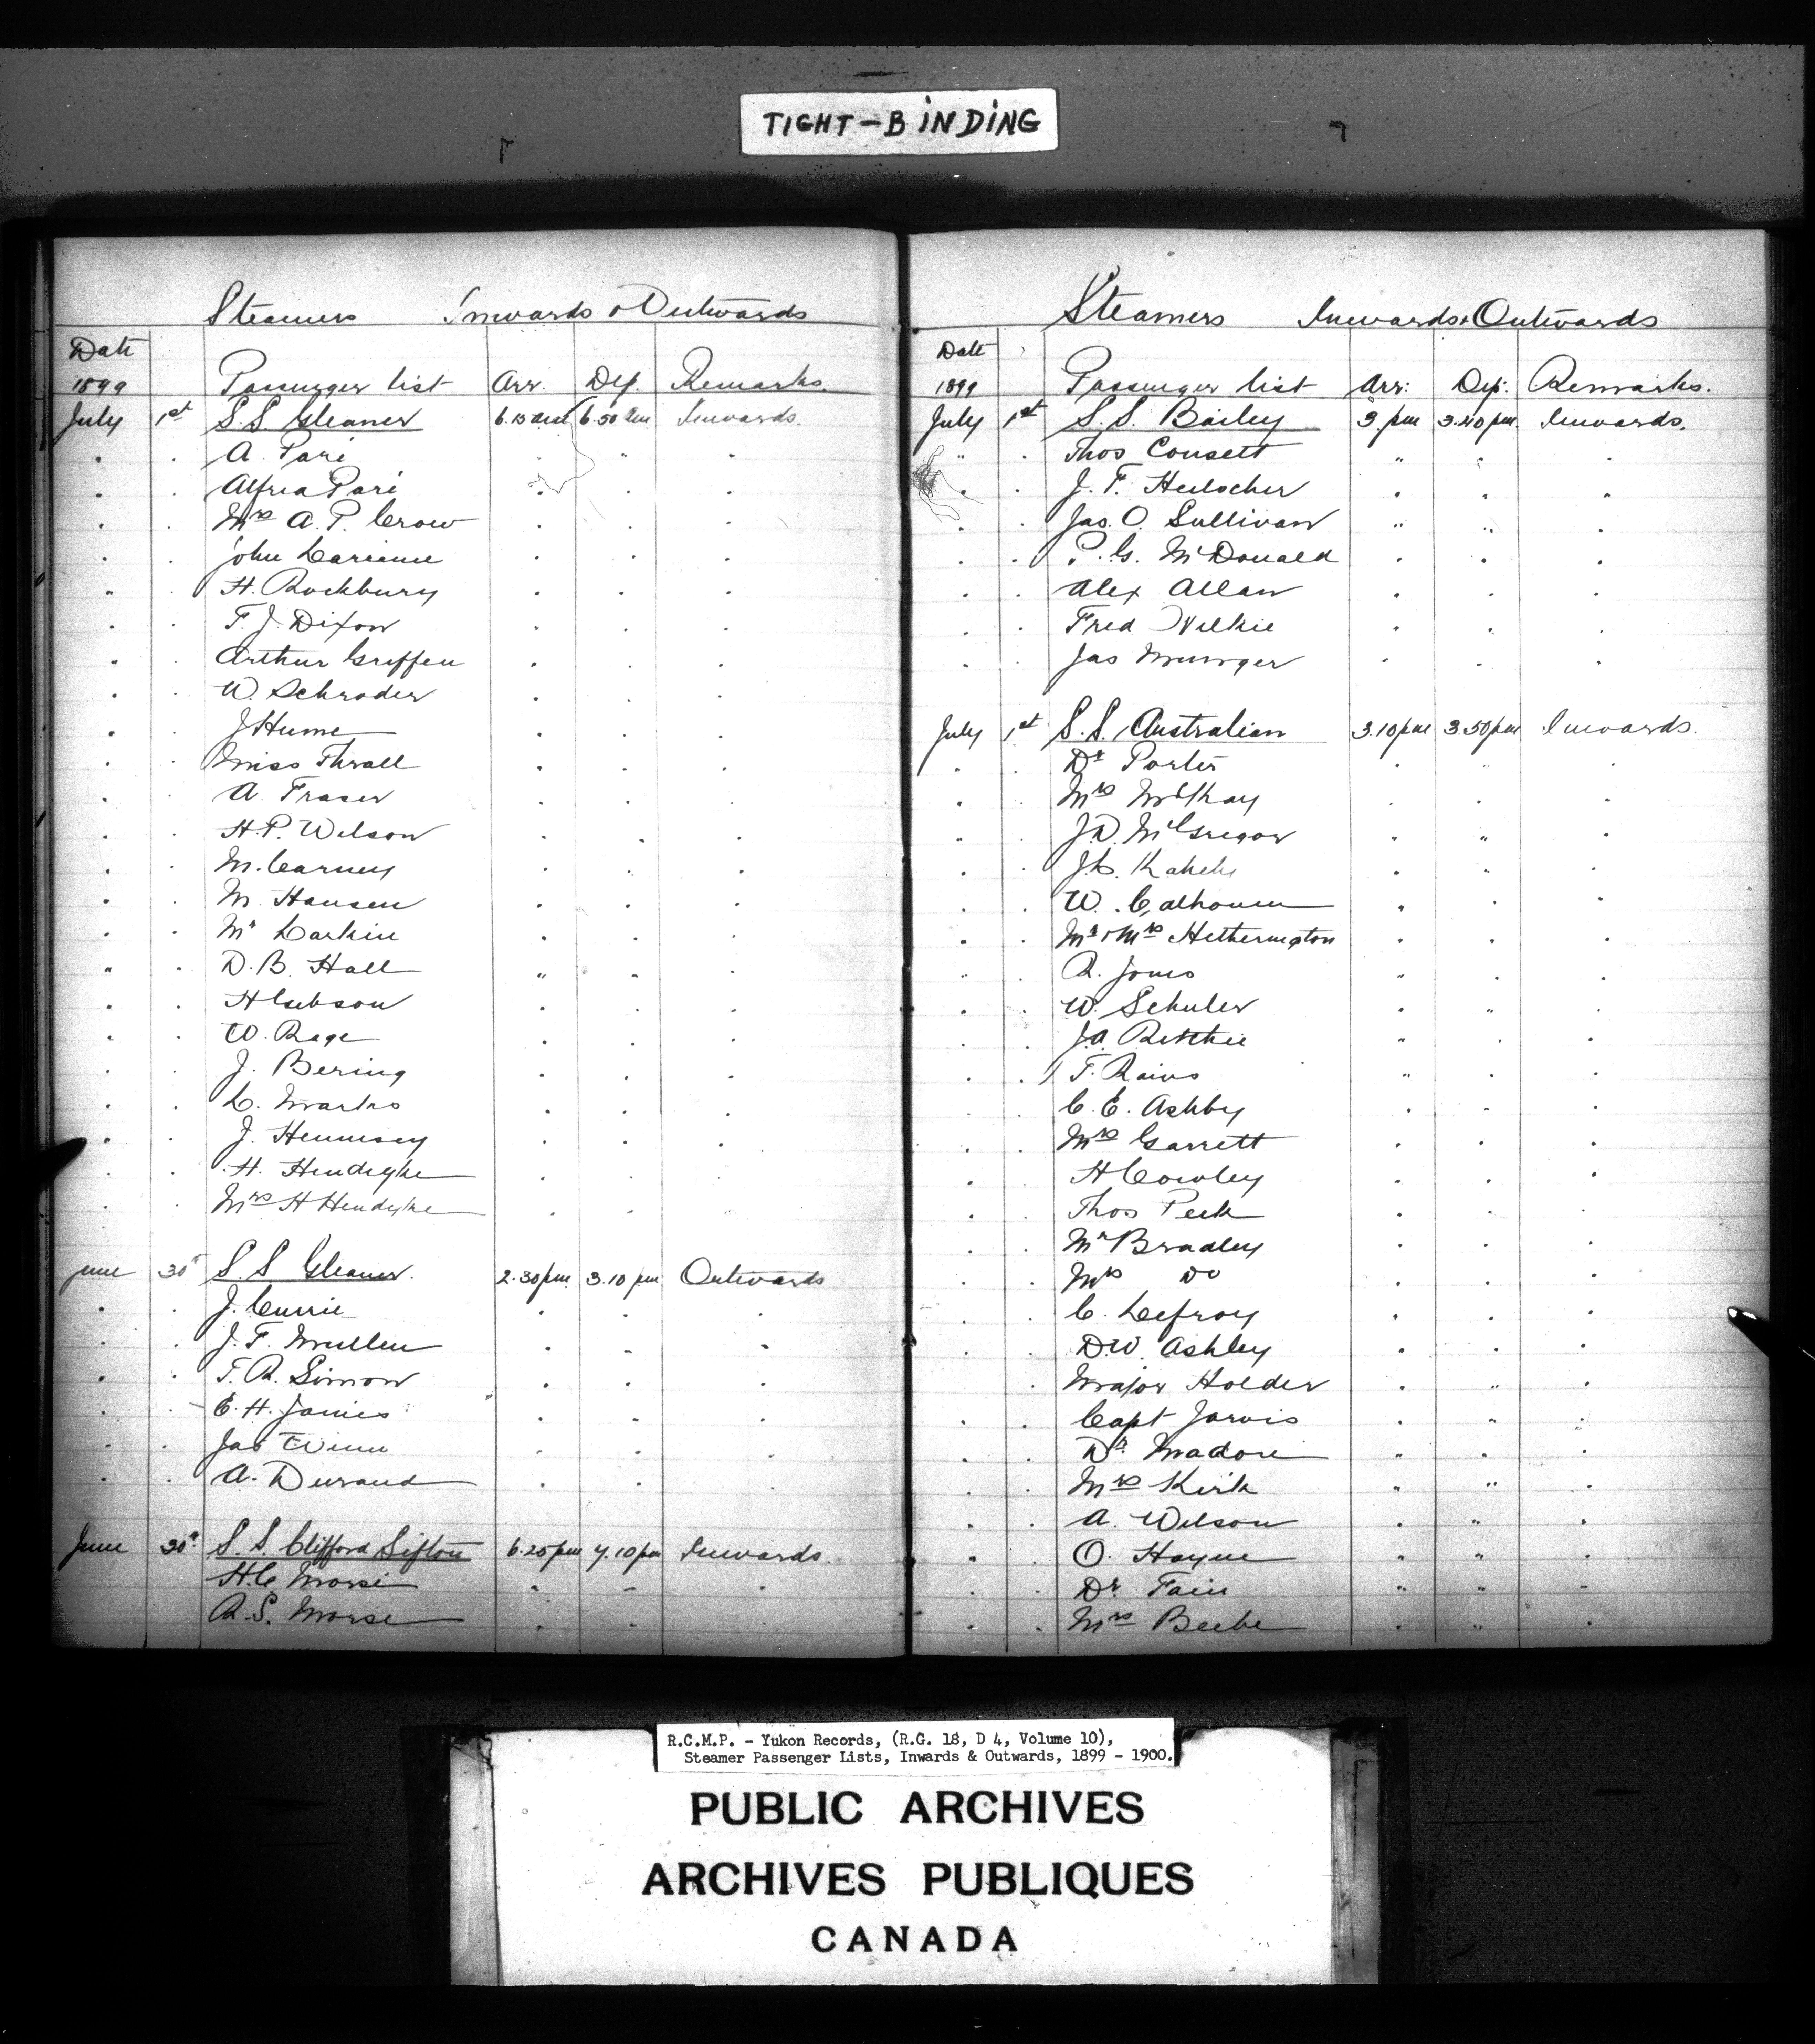 TIGHT-BINDING
Steamers Inwards & Outwards
Date
1899 Passenger list Arr. Dep. Remarks.
July 1st S.S. Gleaner 6.15 am 6.50 am Inwards.
A. Pari
Alfred Pari
Mrs A. P. Crow
John
H. Rockbury
F. J. Dixon
Arthur Griffen
W. Schroder
J Hume
Miss Thrall
A. Fraser
H. P. Wilson
M. Carney
M. Hansen
Mr Larkin
D. B. Hall
H Gibson
W. Rage
J. Bering
L. Marks
J. Hennesey
H. Hendryke
Mrs H Hendryke
June 30th S. S Gleaner. 2.30 pm. 3.10 pm Outwards
J. Currie
J. F. Mullen
T. R. Simon
E. H. James
Jas Winn
A. Durand
June 30th S. S. Clifford Sifton 6.25 pm 7.10 pm Inwards.
H. C. Morse
R. S. Morse
Steamers Inwards & Outwards
Date
1899 Passenger list Arr: Dep: Remarks.
July 1st S. S. Bailey 3. pm 3.40 pm. Inwards.
Thos Consett
J. F. Hulscher
Jas. O. Sullivan
P. G. McDonald
Alex Allan
Fred Wilkie
Jas Munger
July 1st S. S. Australian 3.10 pm 3.50 pm Inwards.
Dr Porter
Mrs McKay
J. D. McGregor
J. C.
W. Calhoun
Mr & Mrs Hetherington
R. Jones
W. Schuler
J. A. Ritchie
F. Rains
C. E. Ashby
Mrs Garrett
H Cowley
Thos Peek
Mr Bradley
Mrs Do
C. Lefroy
D. W. Ashley
Major Holder
Capt Jarvis
Dr. Madore
Mrs Kirk
A. Wilson
O. Hayne
Dr Fain
Mrs Beebe
R.C.M.P. - Yukon Records, (R.G. 18, D 4, Volume 10),
Steamer Passenger Lists, Inwards & Outwards, 1899 - 1900.
PUBLIC ARCHIVES
ARCHIVES PUBLIQUES
CANADA